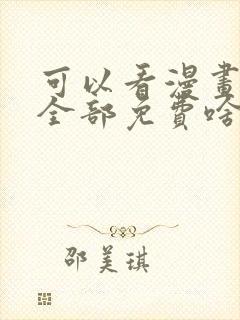 可以看漫畫
全部免費啥
邵美琪